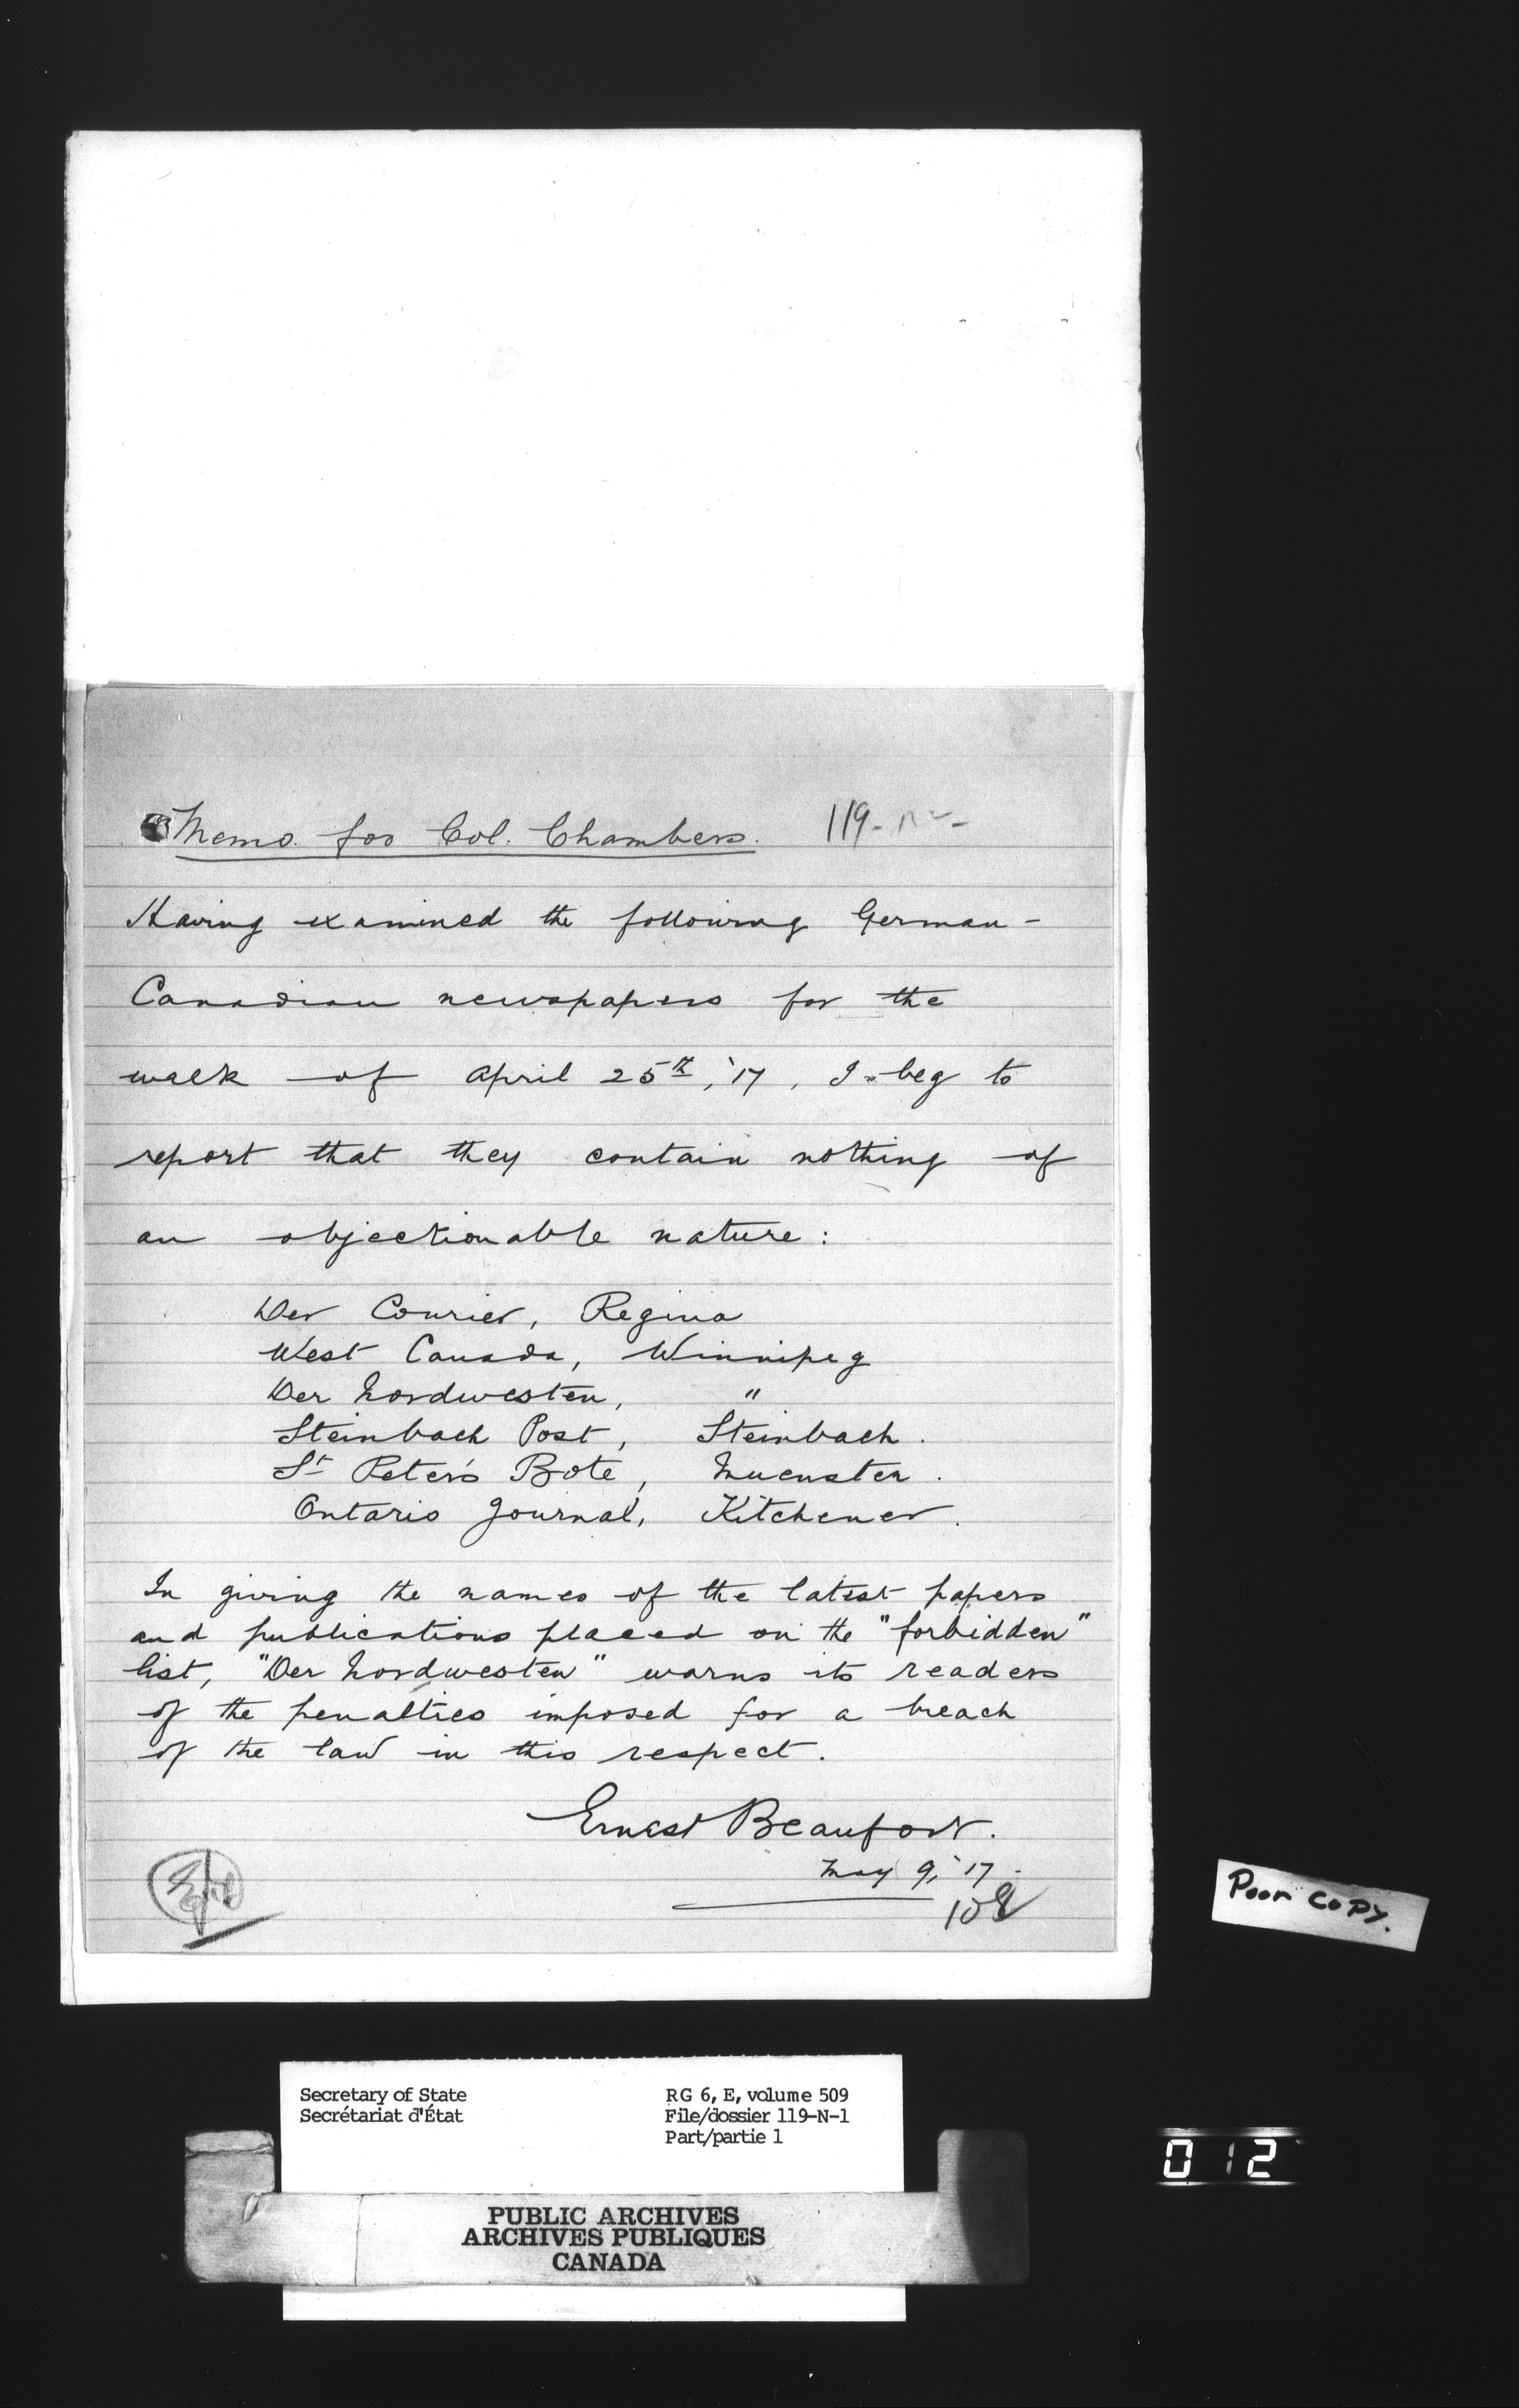 Memo. for Col. Chambers. 119-
Having examined the following German-
Canadian newspapers for the
week of April 25th, '17, I beg to
report that they contain nothing of
an objectionable nature:
Der Courier, Regina
West Canada, Winnipeg
Der Nordwesten, "
Steinbach Post, Steinbach.
St Peter's Bote, Muenster.
Ontario Journal, Kitchener.
In giving the names of the latest papers
and publications placed on the "forbidden"
list, "Der Nordwesten" warns its readers
of the penalties imposed for a breach
of the law in this respect.
Ernest Beaufort.
May 9, '17.
108
Poor COPY.
Secretary of State RG 6, E, volume 509
Secrétariat d'État File/dossier 119-N-1
Part/partie 1
012
PUBLIC ARCHIVES
ARCHIVES PUBLIQUES
CANADA